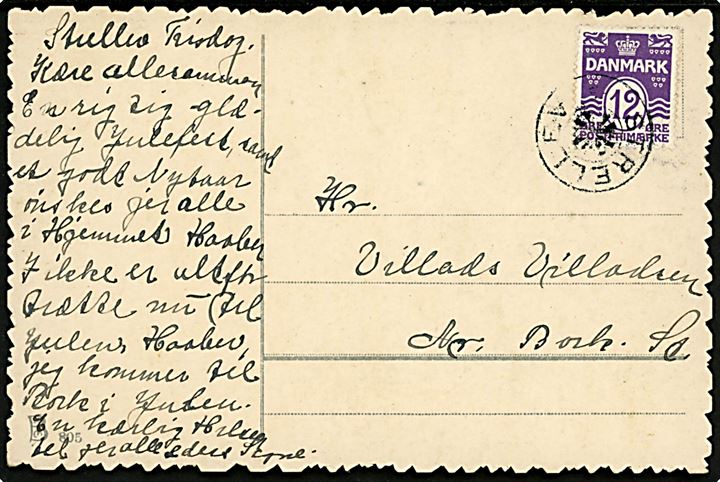 Strellev Tirsdag.
Kære allesammen
En rigtig glæ-
delig Julefest, samt
et godt Nytaar
ønskes jer alle
i Hjemmet Haaber
I ikke er altfor
trætte nu til
Julen, Haaber,
jeg kommer til
Bork i Julen.
En kærlig Hilsen
til jer alle eders Signe.
805
DANMARK
12
ØRE ØRE
POSTFRIMÆRKE
STRELLEV
Hr.
Villads Villadsen
Nr. Bork. St